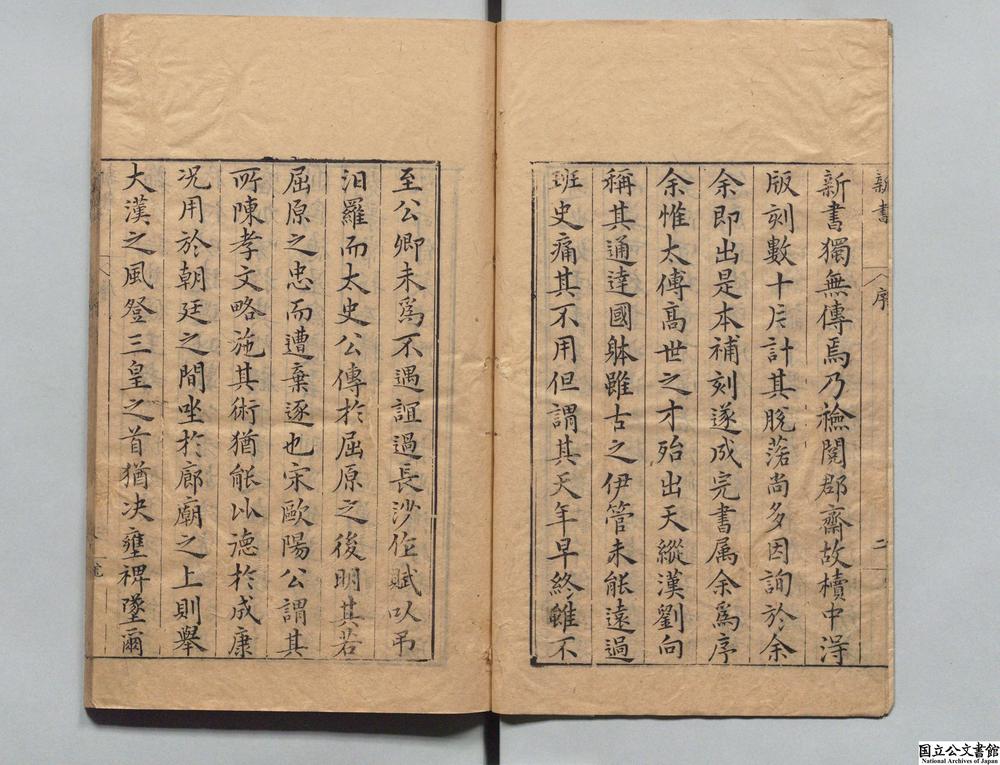 新書
序
二
新書獨無傳焉乃檢閱郡齋故櫝中淂
版刻數十片計其脫落尚多因詢於余
余即出是本補刻遂成完書属余爲序
余惟太傅髙世之才殆出天縱漢劉向
稱其通達國躰雖古之伊管未能遠過
班史痛其不用但謂其天年早終雖不
至公卿未爲不遇誼過長沙作賦以弔
汨羅而太史公傳於屈原之後明其若
屈原之忠而遭棄逐也宋歐陽公謂其
所陳孝文略施其術猶能以德於成康
况用於朝廷之間坐於廊廟之上則舉
大漢之風登三皇之首猶决壅裨墜爾
国立公文書館
National Archives of Japan